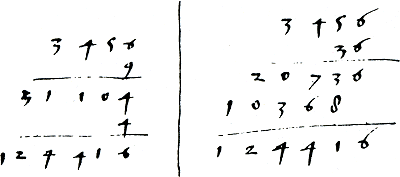 3 4 5 6
9
3 1 1 0 4
4
1 2 4 4 1 6
3 4 5 6
3 6
2 0 7 3 6
1 0 3 6 8
1 2 4 4 1 6